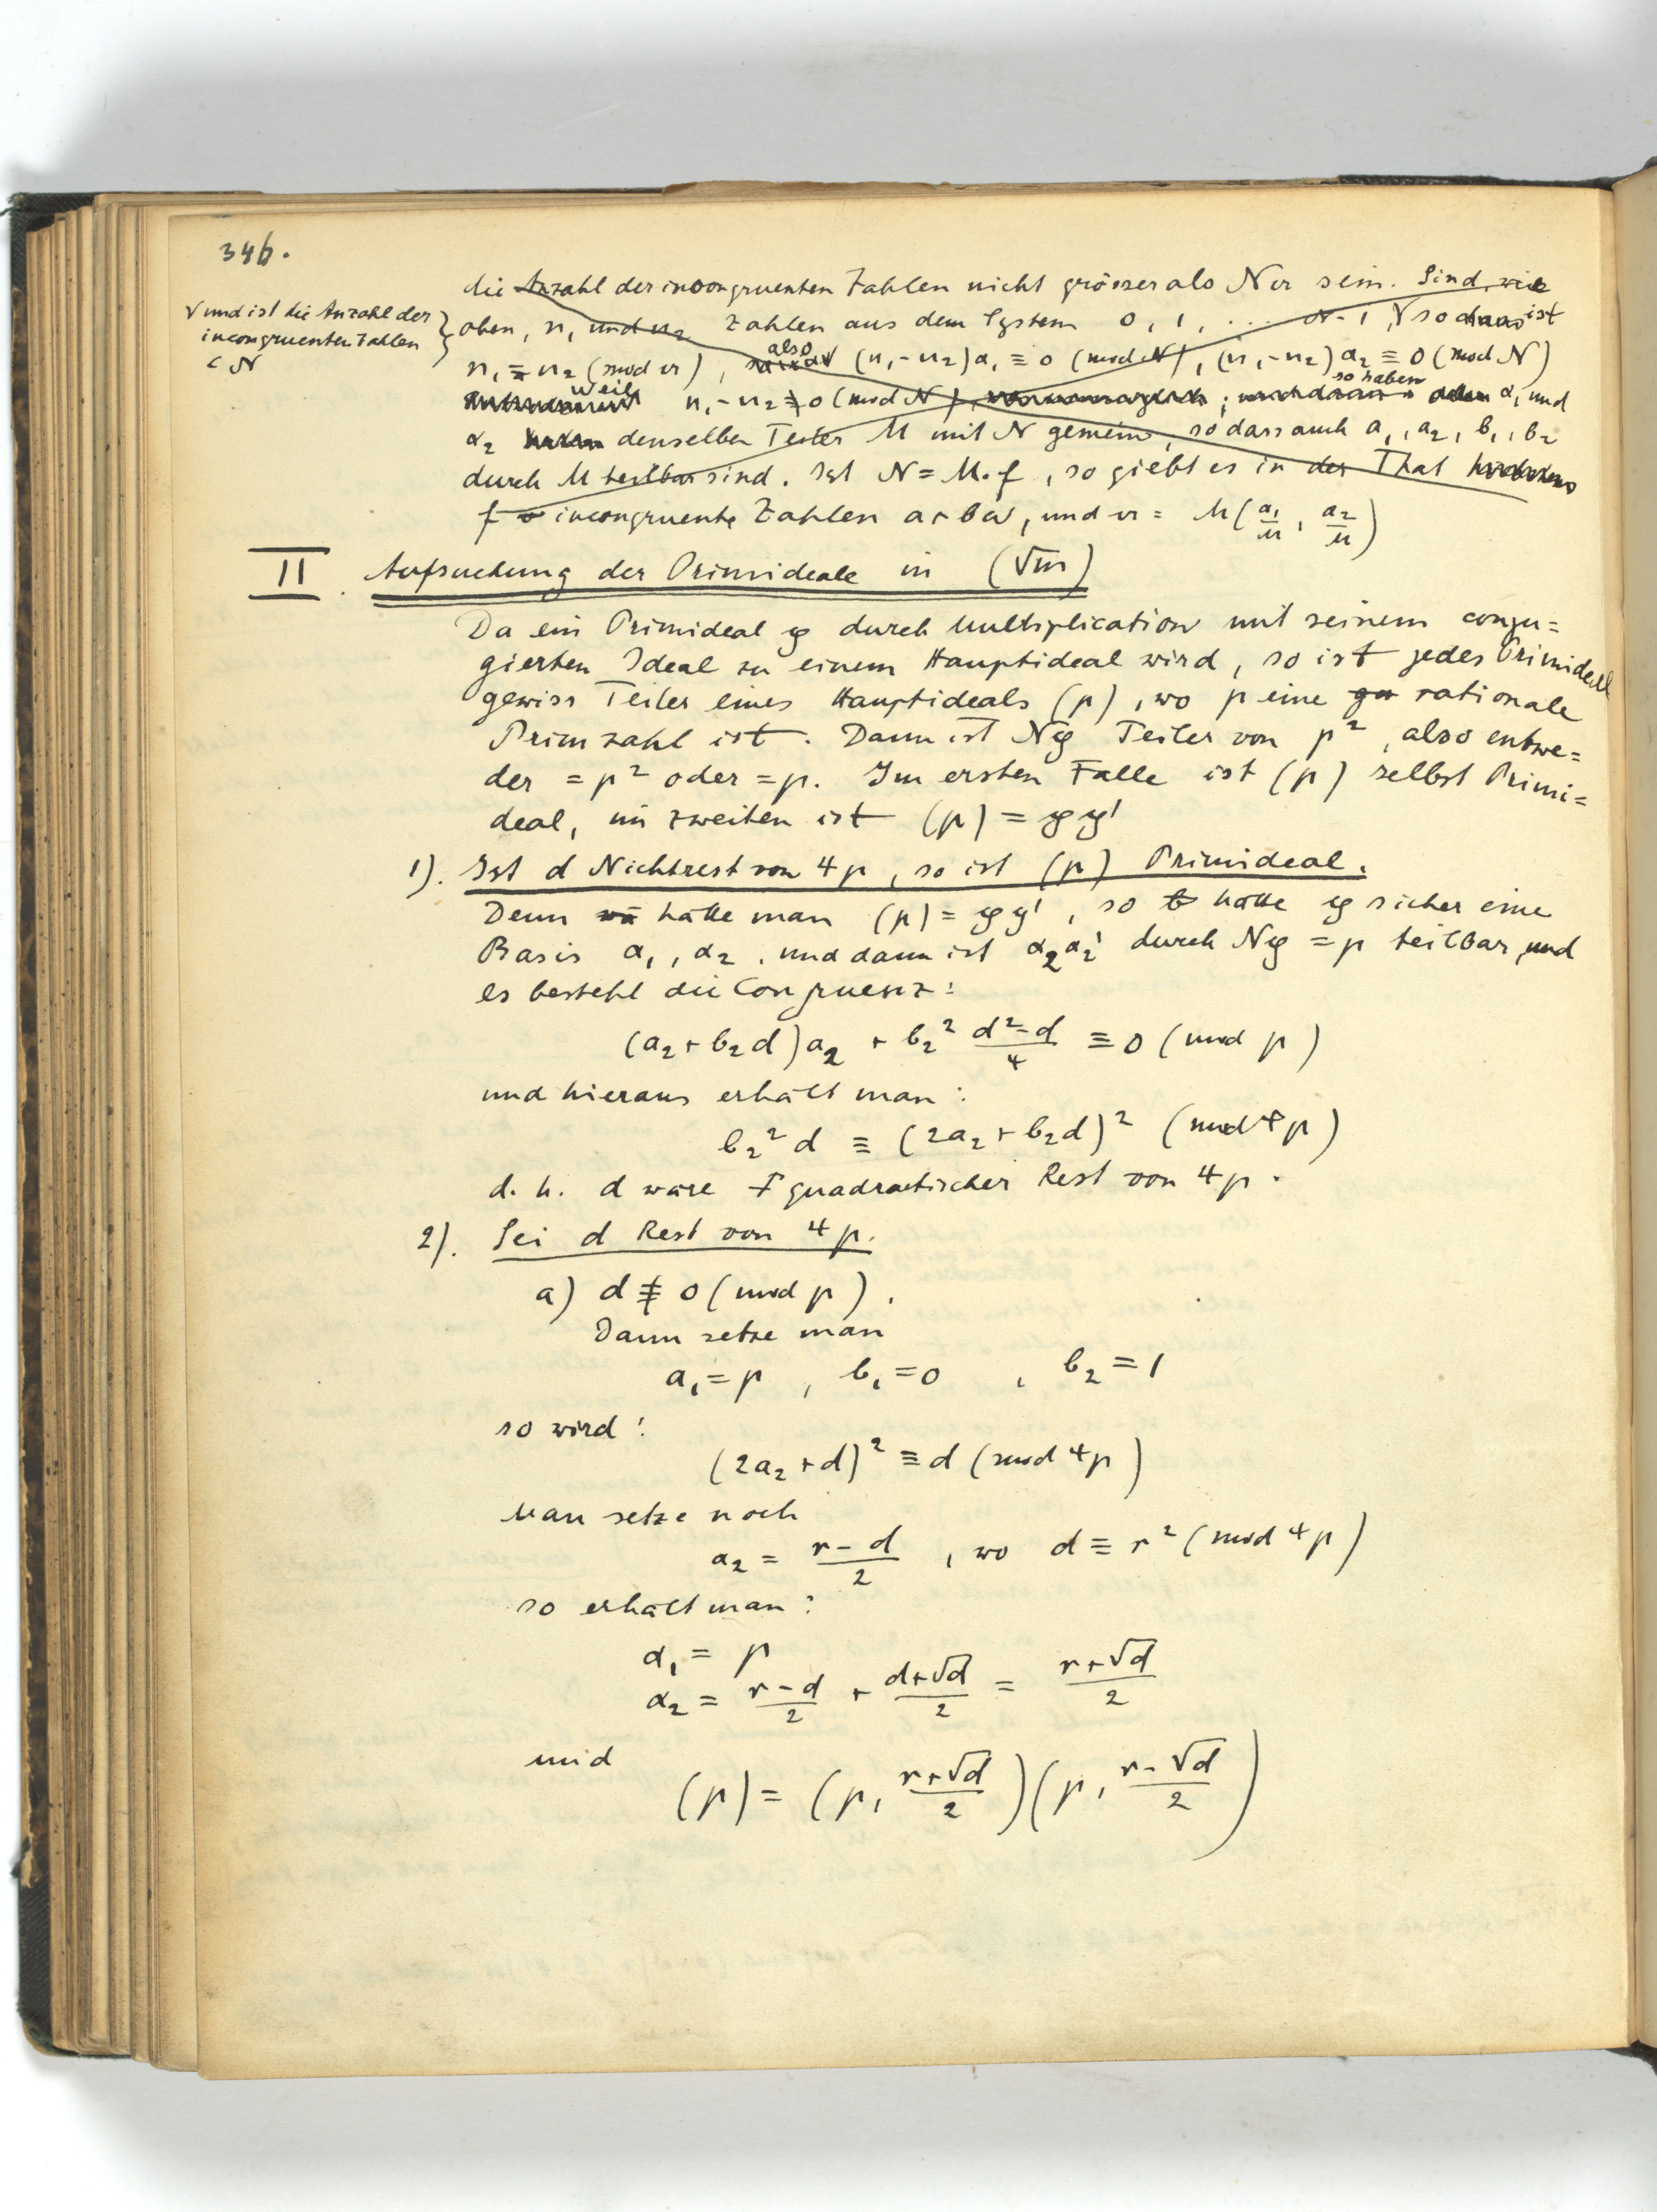 346.
die Anzahl der incongruenten Zahlen nicht grösser als N𝔞 sein. Sind, wie
√ und ist die Anzahl der
incongruenten Zahlen
< N
oben, n₁ und n₂ Zahlen aus dem System 0, 1, ... N-1, √ so dass ist
n₁ ≡ n₂ (mod 𝔞), also (n₁-n₂)α₁ ≡ 0 (mod N), (n₁-n₂)α₂ ≡ 0 (mod N)
weil n₁-n₂ ≢ 0 (mod N), ; so haben α₁ und
α₂ denselben Teiler M mit N gemein, so dass auch a₁, a₂, b₁, b₂
durch M teilbar sind. Ist N = M.f, so giebt es in der That
f incongruente Zahlen a+bω, und 𝔞 = M(α₁/M, α₂/M)
II. Aufsuchung der Primideale in (√m)
Da ein Primideal 𝔭 durch Multiplication mit seinem conju=
gierten Ideal zu einem Hauptideal wird, so ist jedes Primideal
gewiss Teiler eines Hauptideals (p), wo p eine rationale
Primzahl ist. Dann ist N𝔭 Teiler von p², also entwe=
der = p² oder = p. Im ersten Falle ist (p) selbst Primi=
deal, im zweiten ist (p) = 𝔭𝔭'
1). Ist d Nichtrest von 4p, so ist (p) Primideal.
Denn hätte man (p) = 𝔭𝔭', so hätte 𝔭 sicher eine
Basis α₁, α₂, und dann ist α₂α₂' durch N𝔭 = p teilbar, und
es besteht die Congruenz:
(a₂+b₂d)a₂ + b₂² (d²-d)/4 ≡ 0 (mod p)
und hieraus erhält man:
b₂²d ≡ (2a₂+b₂d)² (mod 4p)
d. h. d wäre quadratischer Rest von 4p.
2). Sei d Rest von 4p.
a) d ≢ 0 (mod p).
Dann setze man
a₁ = p, b₁ = 0, b₂ = 1
so wird:
(2a₂+d)² ≡ d (mod 4p)
Man setze noch
a₂ = (r-d)/2, wo d ≡ r² (mod 4p)
so erhält man:
α₁ = p
α₂ = (r-d)/2 + (d+√d)/2 = (r+√d)/2
und
(p) = (p, (r+√d)/2)(p, (r-√d)/2)